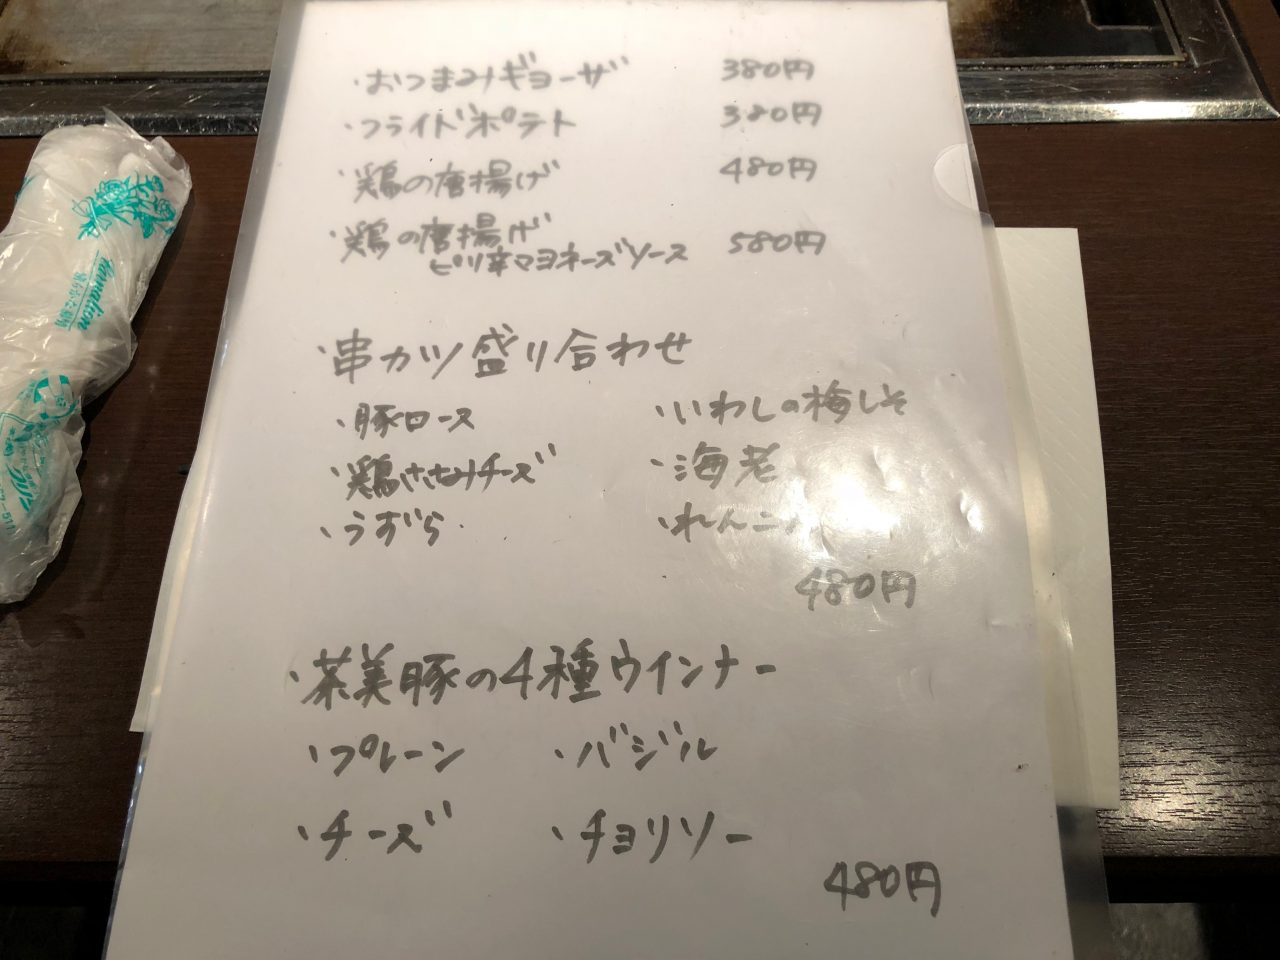 ・おつまみギョーザ 380円
・フライドポテト 380円
・鶏の唐揚げ 480円
・鶏の唐揚げ
ピリ辛マヨネーズソース 580円
・串カツ盛り合わせ
・豚ロース ・いわしの梅しそ
・鶏ささみチーズ ・海老
・うずら ・れんこん
480円
・茶美豚の4種ウインナー
・プレーン ・バジル
・チーズ ・チョリソー
480円